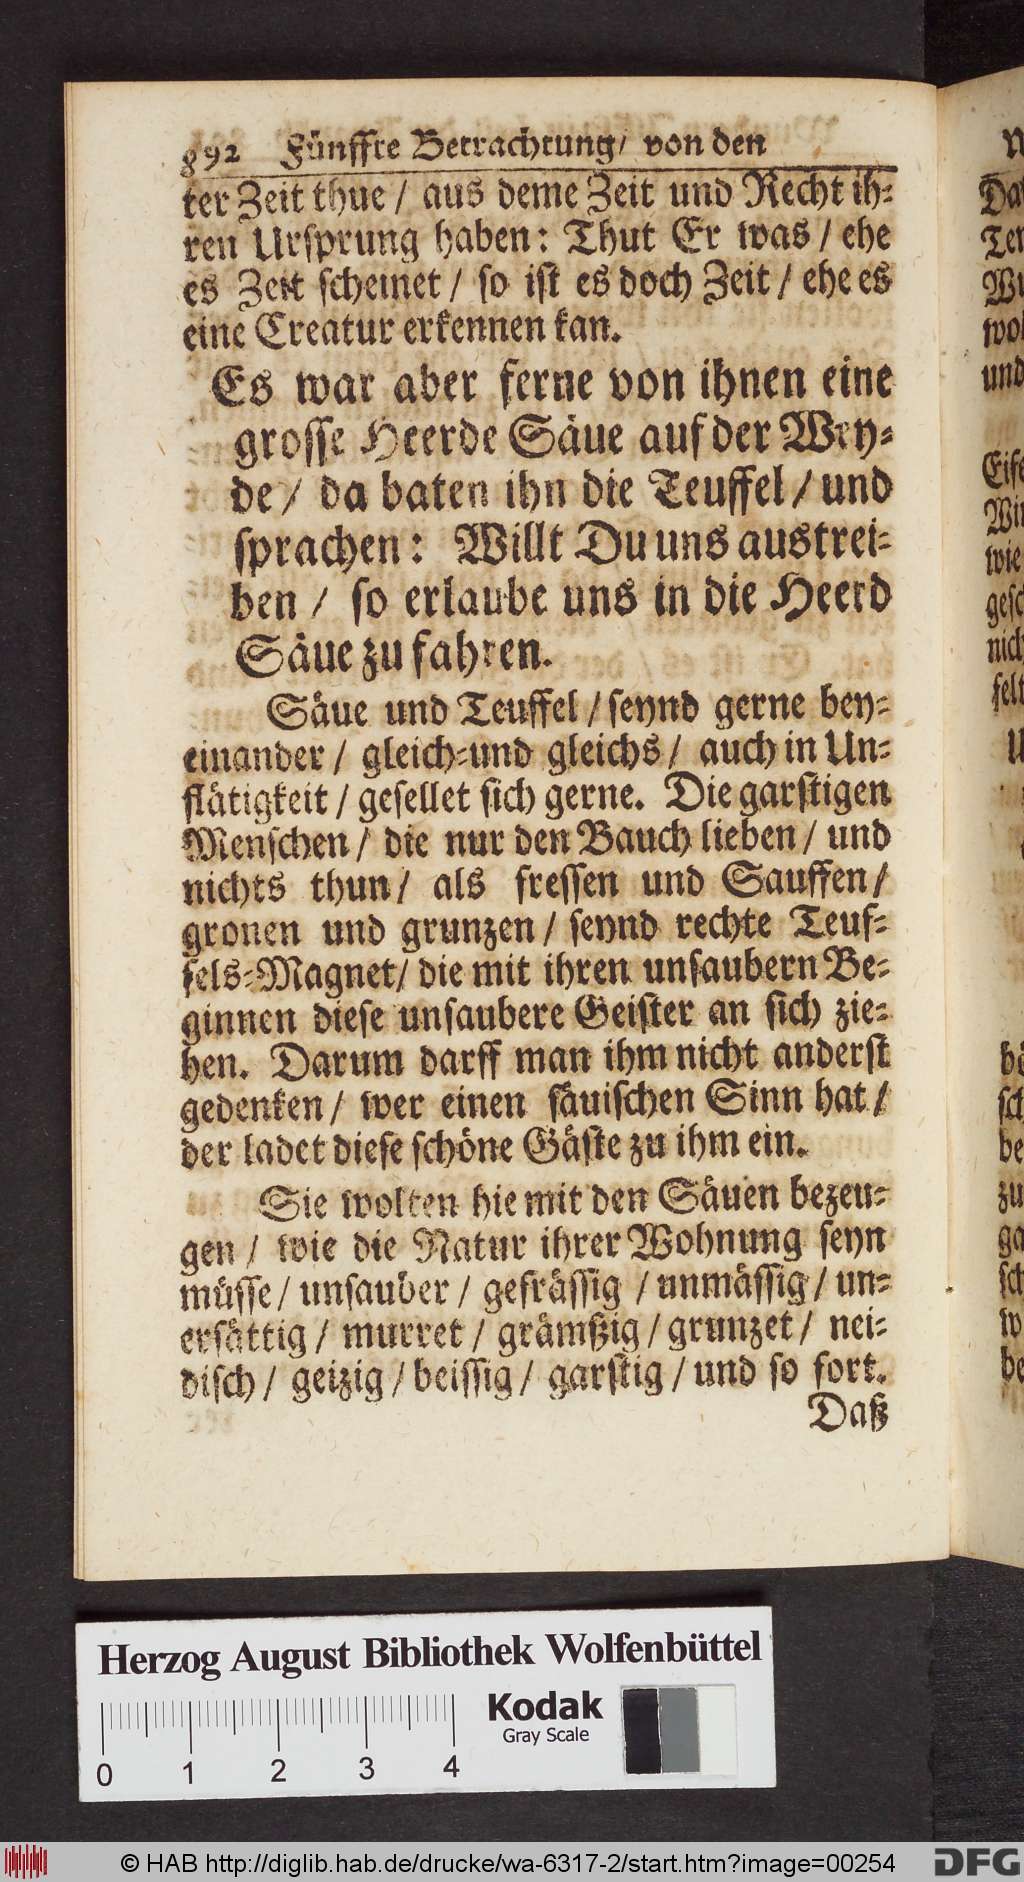 892 Fünffte Betrachtung/ von den
ter Zeit thue / aus deme Zeit und Recht ih-
ren Ursprung haben: Thut Er was / ehe
es Zeit scheinet / so ist es doch Zeit / ehe es
eine Creatur erkennen kan.
Es war aber ferne von ihnen eine
grosse Heerde Säue auf der Wey-
de / da baten ihn die Teuffel / und
sprachen: Willt Du uns austrei-
ben / so erlaube uns in die Heerd
Säue zu fahren.
Säue und Teuffel / seynd gerne bey-
einander / gleich-und gleichs / auch in Un-
flätigkeit / gesellet sich gerne. Die garstigen
Menschen / die nur den Bauch lieben / und
nichts thun / als fressen und Sauffen /
gronen und grunzen / seynd rechte Teuf-
fels-Magnet / die mit ihren unsaubern Be-
ginnen diese unsaubere Geister an sich zie-
hen. Darum darff man ihm nicht anderst
gedenken / wer einen säuischen Sinn hat /
der ladet diese schöne Gäste zu ihm ein.
Sie wolten hie mit den Säuen bezeu-
gen / wie die Natur ihrer Wohnung seyn
müsse / unsauber / gefrässig / unmässig / un-
ersättig / murret / grämßig / grunzet / nei-
disch / geizig / beissig / garstig / und so fort.
Daß
Herzog August Bibliothek Wolfenbüttel
Kodak
Gray Scale
0 1 2 3 4
© HAB http://diglib.hab.de/drucke/wa-6317-2/start.htm?image=00254
DFG